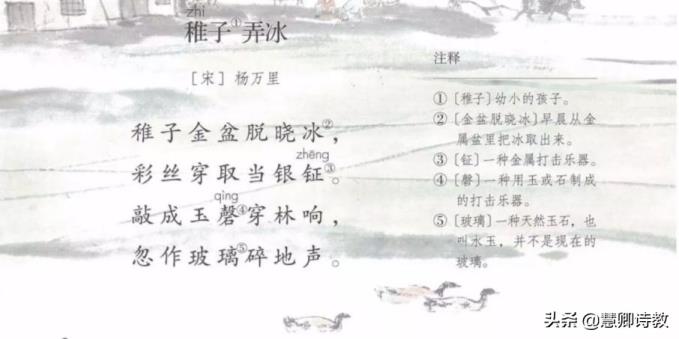 zhì
稚子①弄冰
［宋］杨万里
稚子金盆脱晓冰②，
zhēng
彩丝穿取当银钲③。
qìng
敲成玉磬④穿林响，
忽作玻璃⑤碎地声。
注释
①〔稚子〕幼小的孩子。
②〔金盆脱晓冰〕早晨从金
属盆里把冰取出来。
③〔钲〕一种金属打击乐器。
④〔磬〕一种用玉或石制成
的打击乐器。
⑤〔玻璃〕一种天然玉石，也
叫水玉，并不是现在的
玻璃。
头条 @慧卿诗教